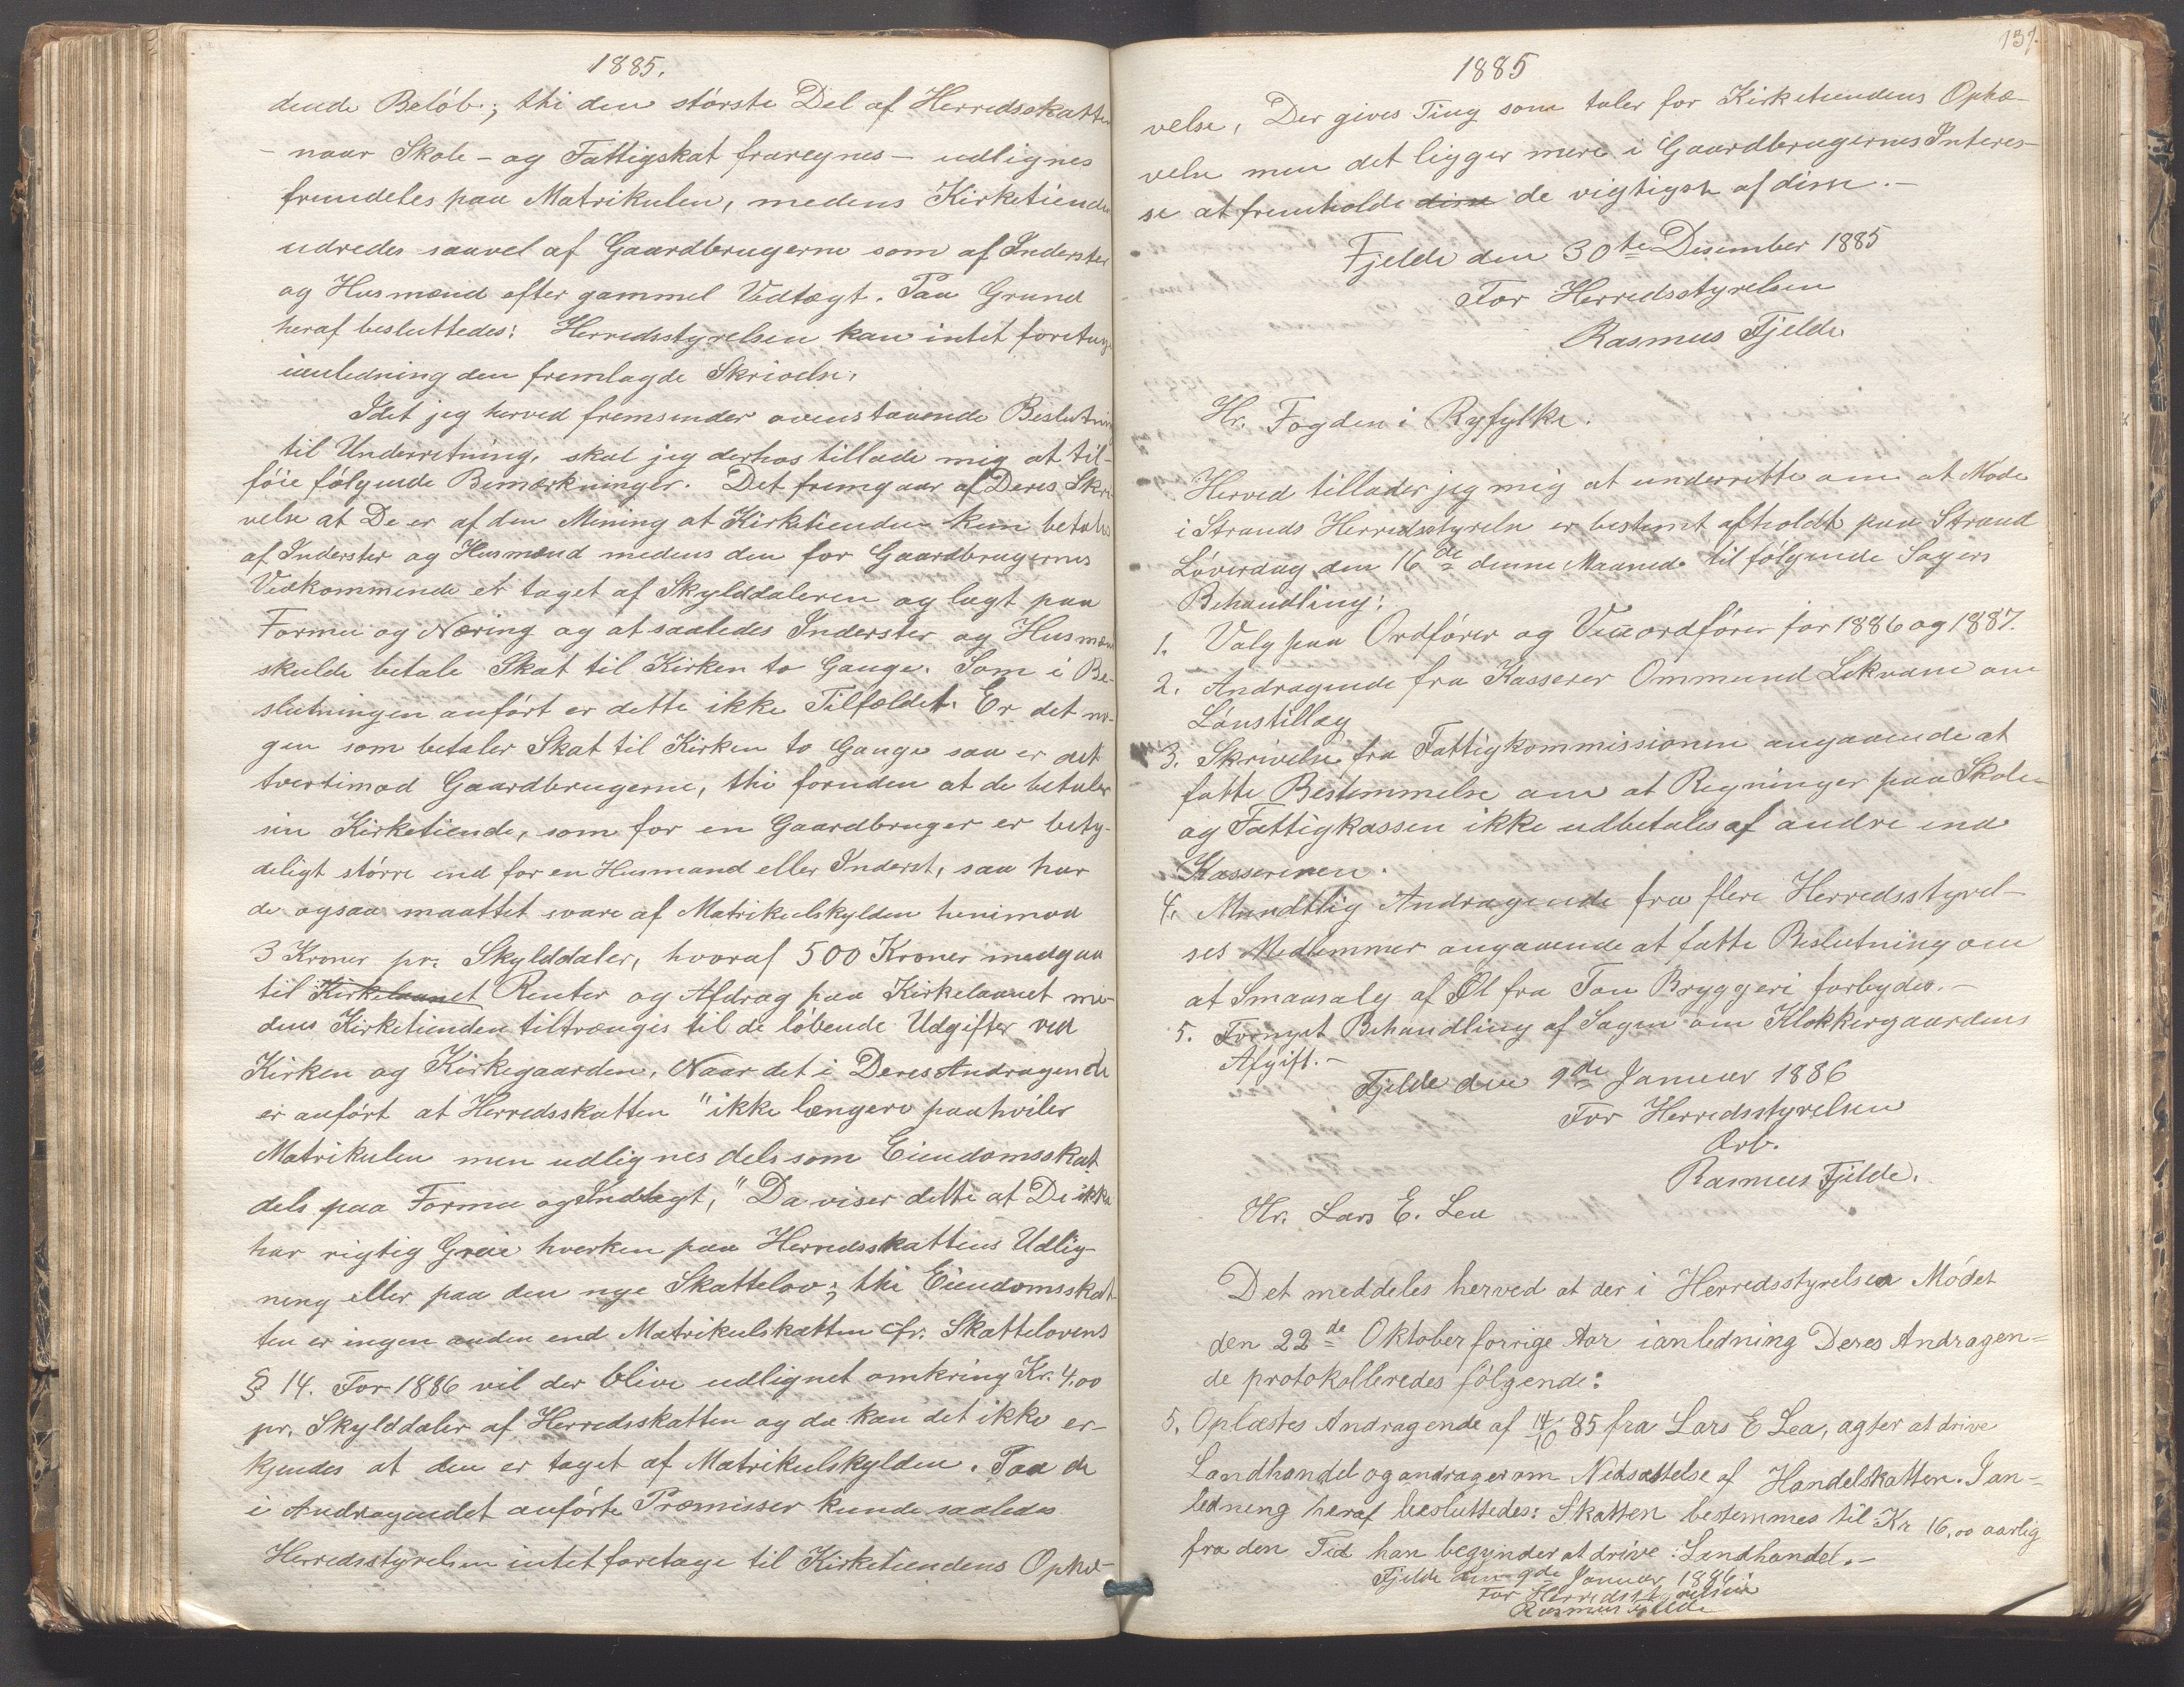 1885.
dende Beløb; thi den største Del af Herredsskatten
- naar Skole- og Fattigskat fraregnes - udlignes
fremdeles paa Matrikulen, medens Kirketienden
udredes saavel af Gaardbrugerne som af Inderster
og Husmænd efter gammel Vedtægt. Paa Grund
heraf besluttedes: Herredsstyrelsen kan intet foretage
ianledning den fremlagde Skrivelse.
Idet jeg herved fremsender ovenstaaende Beslutning
til Underretning, skal jeg derhos tillade mig at til-
føie følgende Bemærkninger. Det fremgaar af Deres Skri-
velse at De er af den Mening at Kirketienden kun betales
af Inderster og Husmænd medens den for Gaardbrugernes
Vedkommende et taget af Skylddaleren og lagt paa
Formue og Næring og at saaledes Inderster og Husmænd
skulde betale Skat til Kirken to Gange. Som i Be-
slutningen anført er dette ikke Tilfældet. Er det no-
gen som betaler Skat til Kirken to Gange saa er det
tvertimod Gaardbrugerne, thi foruden at de betaler
sin Kirketiende, som for en Gaardbruger er bety-
deligt større end for en Husmand eller Inderst, saa har
de ogsaa maattet svare af Matrikulskylden henimod
3 Kroner pr. Skylddaler, hvoraf 500 Kroner medgaa
til Kirkelaanet Renter og Afdrag paa Kirkelaanet me-
dens Kirketienden tiltrænges til de løbende Udgifter ved
Kirken og Kirkegaarden. Naar det i Deres Andragende
er anført at Herredsskatten "ikke længere paahviler
Matrikulen men udlignes dels som Eiendomsskat
dels paa Formue og Indtægt," Da viser dette at De ikke
har rigtig Greie hverken paa Herredsskattens Udlig-
ning eller paa den nye Skattelov; thi Eiendomsskat-
ten er ingen anden end Matrikulskatten cfr. Skattelovens
§ 14. For 1886 vil der blive udlignet omkring Kr. 4,00
pr. Skylddaler af Herredsskatten og da kan det ikke er-
kjendes at den er taget af Matrikulskylden. Paa de
i Andragendet anførte Præmisser kunde saaledes
Herredsstyrelsen intet foretage til Kirketiendens Ophæ-
137.
1885
velse, Der gives Ting som taler for Kirketiendens Ophæ-
velse men det ligger mere i Gaardbrugernes Interes-
se at fremholde disse de vigtigste af disse.-
Fjelde den 30te Desember 1885
For Herredsstyrelsen
Rasmus Fjelde
Hr. Fogden i Ryfylke.
Herved tillader jeg mig at underrette om at Møde
i Strands Herredsstyrelse er bestemt afholdt paa Strand
Løverdag den 16de denne Maaned til følgende Sagers
Behandling:
1. Valg paa Ordfører og Viceordfører for 1886 og 1887.
2. Andragende fra Kasserer Ommund Lekvam om
Lønstillæg
3. Skrivelse fra Fattigkommissionen angaaende at
fatte Bestemmelse om at Regninger paa Skole-
og Fattigkassen ikke udbetales af andre end
Kassereren.
4. Mundtlig Andragende fra flere Herredsstyrel-
ses Medlemmer angaaende at fatte Beslutning om
at Smaasalg af Øl fra Tou Bryggeri forbydes.-
5. Fornyet Behandling af Sagen om Klokkergaardens
Afgift.-
Fjelde den 9de Januar 1886
For Herredsstyrelsen
Ærb.
Rasmus Fjelde.
Hr. Lars E. Lea
Det meddeles herved at der i Herredsstyrelsen Mødet
den 22de Oktober forrige Aar ianledning Deres Andragen=
de protokolleredes følgende:
5. Oplæstes Andragende af 14/10 85 fra Lars E Lea, agter at drive
Landhandel og andrager om Nedsættelse af Handelskatten. I an-
ledning heraf besluttedes: Skatten bestemmes til Kr 16,00 aarlig
fra den Tid han begynder at drive Landhandel.-
Fjelde den 9de Januar 1886
For Herredsstyrelsen
Rasmus Fjelde